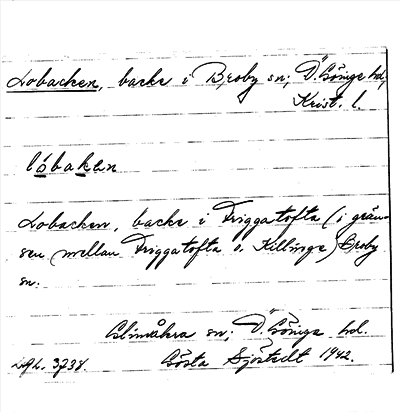 Lobacken, backe i Broby sn; Ö. Göinge hd,
Krist. l.
lobaken
Lobacken, backe i Friggatofta (i grän-
sen mellan Friggatofta o. Killinge) Broby
sn.
Glimåkra sn; Ö. Göinge hd.
3738. Gösta Sjöstedt 1942.